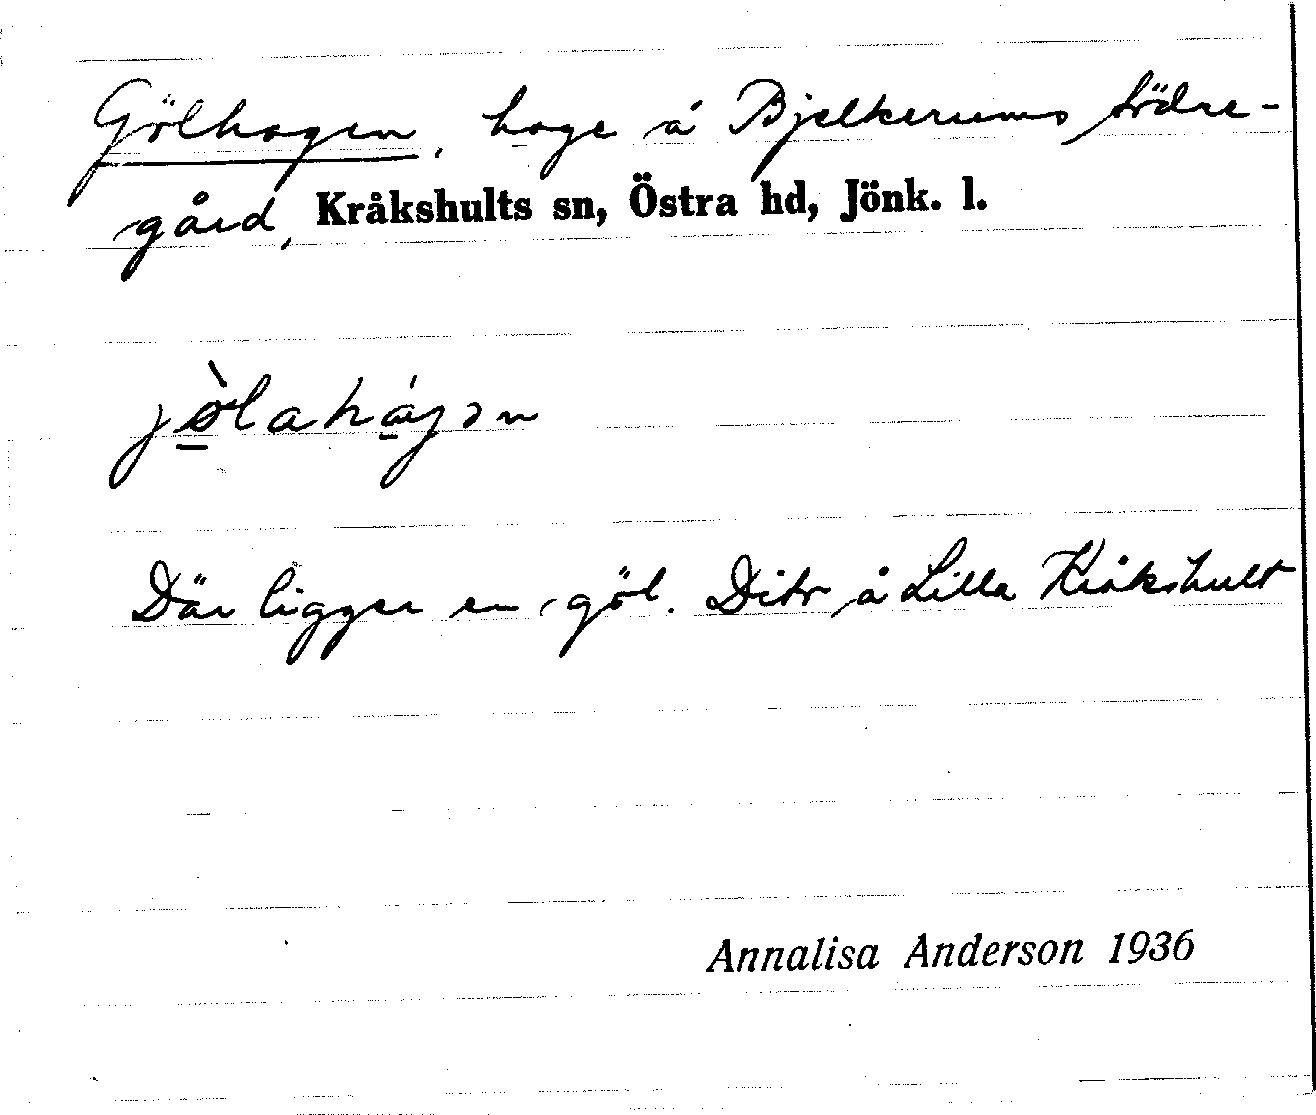 Gölhagen, hage å Bjelkerums södre-
gård, Kråkshults sn, Östra hd, Jönk. l.
jø̀lahágən
Där ligger en göl. Dito å Lilla Kråkshult
Annalisa Anderson 1936